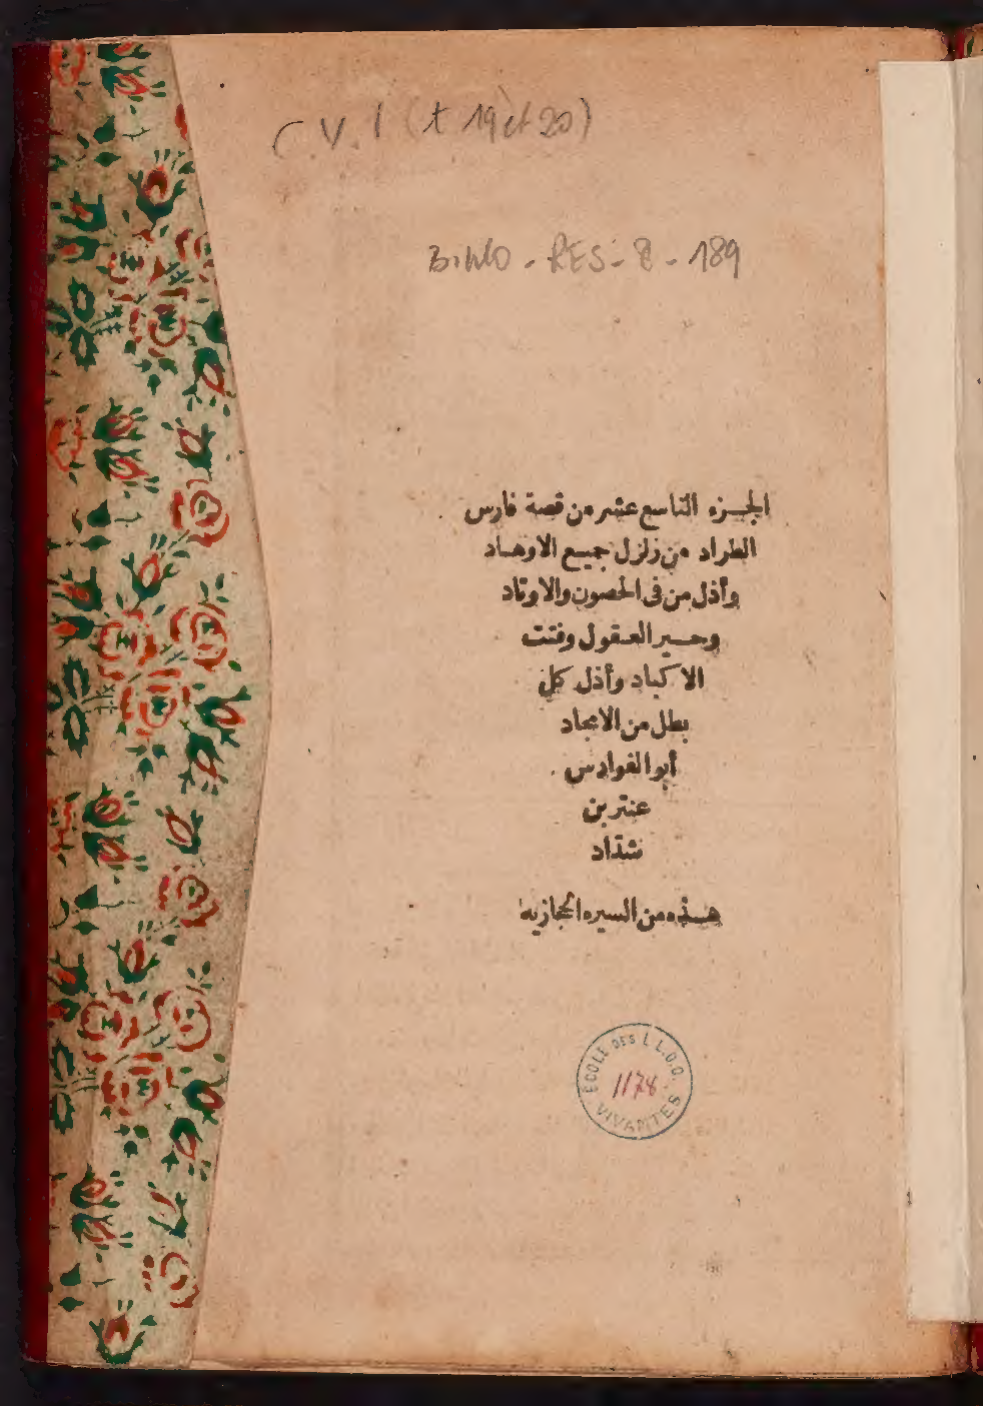 C.V.1 (t 19 et 20)
BIULO-RES-8-189
الجزء التاسع عشر من قصة فارس
الطراد من زلزل جميع الاوهاد
وأذل من فى الحصون والاوتاد
وحير العقول وفتت
الاكباد وأذل كل
بطل من الامجاد
أبو الفوارس
عنتر بن
شداد
هذه من السيره الحجازيه
ECOLE DES L L.O.O.
1178
VIVANTES